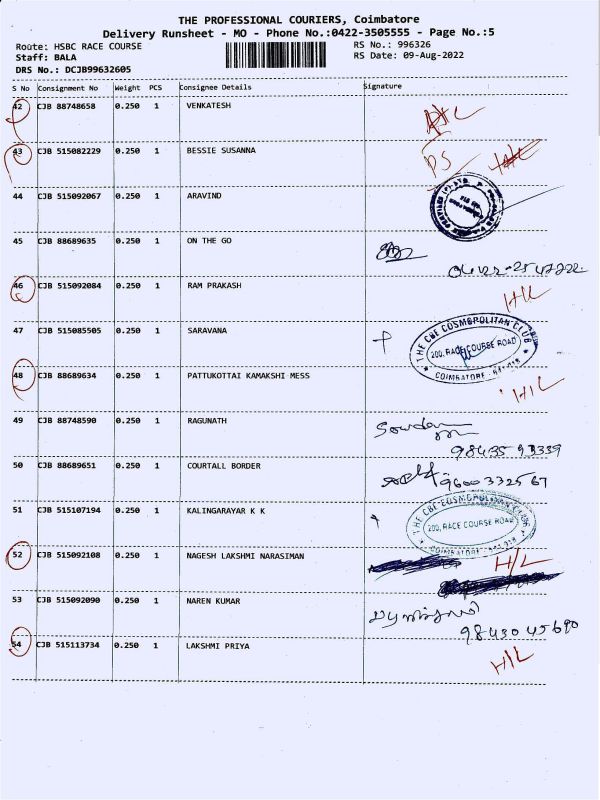 THE PROFESSIONAL COURIERS, Coimbatore
Delivery Runsheet - MO - Phone No.:0422-3505555 - Page No.:5
Route: HSBC RACE COURSE RS No.: 996326
Staff: BALA RS Date: 09-Aug-2022
DRS No.: DCJB99632605
S No Consignment No Weight PCS Consignee Details Signature
42 CJB 88748658 0.250 1 VENKATESH
43 CJB 515082229 0.250 1 BESSIE SUSANNA
DS
44 CJB 515092067 0.250 1 ARAVIND
45 CJB 88689635 0.250 1 ON THE GO
46 CJB 515092084 0.250 1 RAM PRAKASH H/L
47 CJB 515085505 0.250 1 SARAVANA
THE CBE COSMOPOLITAN CLUB
200, RACE COURSE ROAD
COIMBATORE - 641 018
48 CJB 88689634 0.250 1 PATTUKOTTAI KAMAKSHI MESS H/L
49 CJB 88748590 0.250 1 RAGUNATH
98435 93339
50 CJB 88689651 0.250 1 COURTALL BORDER 9600332567
51 CJB 515107194 0.250 1 KALINGARAYAR K K
THE CBE COSMOPOLITAN CLUB
200, RACE COURSE ROAD
COIMBATORE - 641 018
52 CJB 515092108 0.250 1 NAGESH LAKSHMI NARASIMAN H/L
53 CJB 515092090 0.250 1 NAREN KUMAR
98430 45690
54 CJB 515113734 0.250 1 LAKSHMI PRIYA H/L